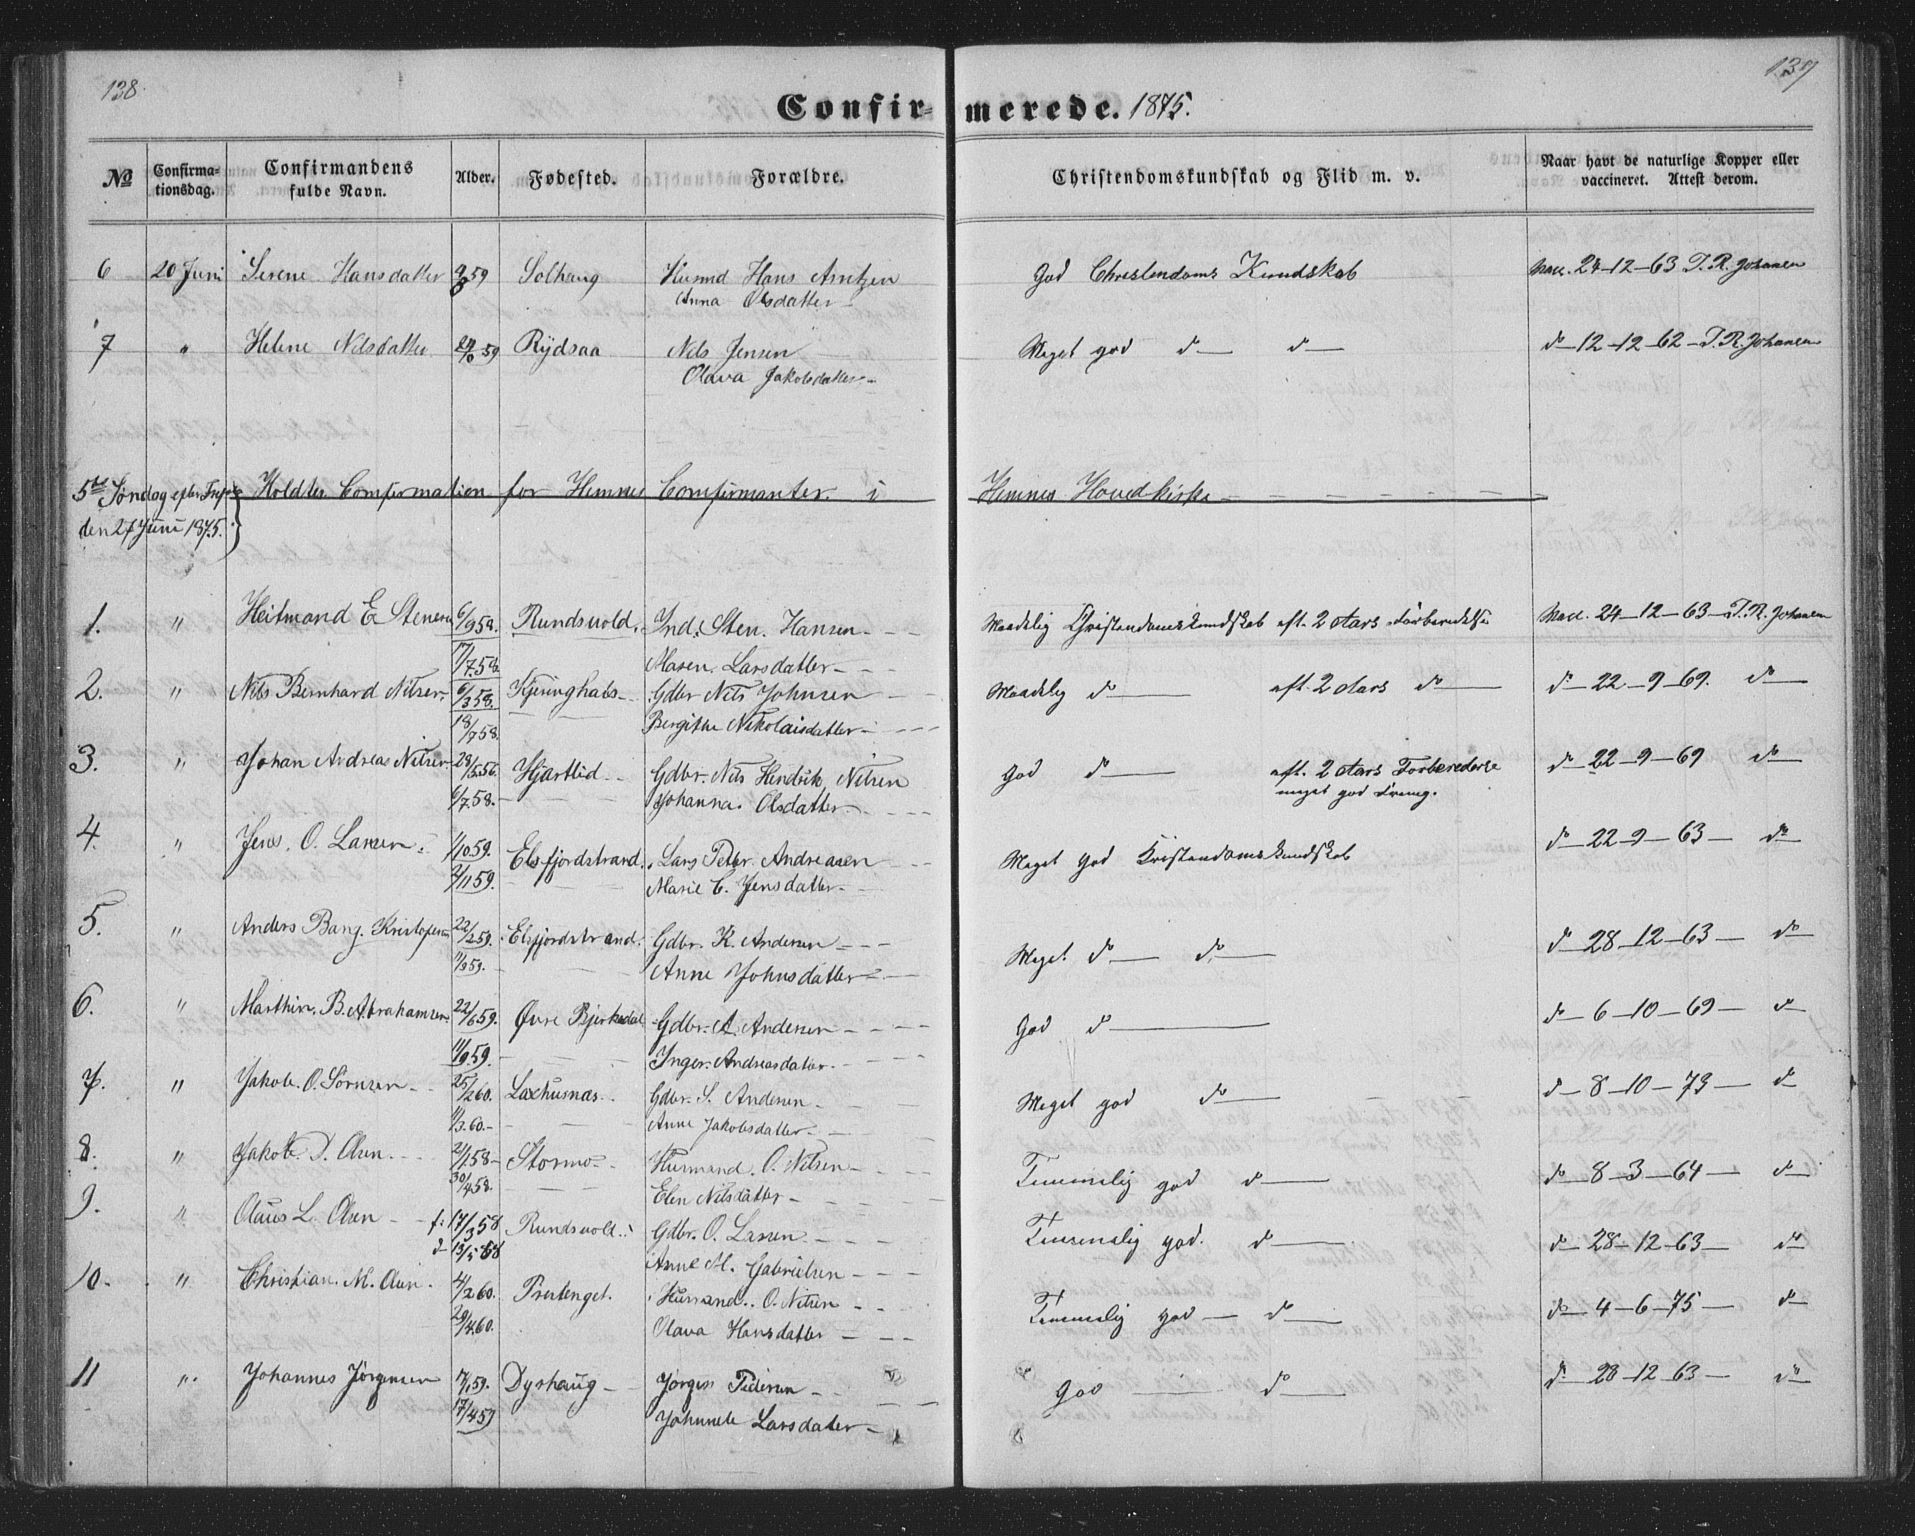 138.
139
Confirmerede. 1875.
№ Confirmationsdag. Confirmandens fulde Navn. Alder. Fødested. Forældre. Christendomskundskab og Flid m. v. Naar havt de naturlige Kopper eller vaccineret. Attest derom.
6 20 Juni Serene Hansdatter 59 Solhaug Husmd Hans Arntzen God Christendoms Kundskab Vacc. 24-12-63 T. R. Johansen
Anna Olsdatter
7 " Helene Nilsdatter 59 Rydsaa Nils Jensen Meget god do do do 12-12-62 - T. R. Johansen
Olava Jakobsdatter
5te Søndag efter Holdtes Comfirmation for Hemnes Comfirmanter i Hemnes Hovedkirke
den 27 Juni 1875.
1. " Heitmand E Stensen 6/9 58. Rundsvold. Ind: Sten. Hansen Maadelig Christendomskundskab eft. 2 Aars Forberedelse Vacc. 24-12-63 - T. R. Johansen
17/7 58 Maren Larsdatter
2. " Nils Bernhard Nilsen 6/3 58. Kjeringhals Gdbr Nils Johnsen Maadelig do eft. 2 Aars do do 22-9-69. do
18/7 58. Bergithe Nikolaisdatter
3. " Johan Andreas Nilsen 28/5 56. Hjartlid Gdbr. Nils Hendrik Nilsen God do eft. 2 Aars Forberedelse do 22-9-69 do
6/7 58. Johanna Olsdatter meget god
4. " Jens. O. Larsen 1/10 59. Elsfjordstrand. Lars Peter Andreasen Meget god Kristendomskundskab do 22-9-63 do
2/11 59. Marie C. Jensdatter
5. " Anders Bang. Kristofersen 22/2 59. Elsfjordstrand. Gdbr. K. Andersen Meget do do do 28-12-63 do
11/9 59. Anne Johnsdatter
6. " Marthin. B. Abrahamsen 22/6 59. Øvre Bjerkadal Gdbr. A. Andersen God do do 6-10-69 do
11/9 59. Inger Andreasdatter
7. " Jakob. O. Sørnsen 25/2 60. Laxhusnæs Gdbr. S. Andersen Meget god do do 8-10-73 do
11/3 60. Anne Jakobsdatter
8. " Jakob P. Olsen 21/1 58 Stormo Husmand. O. Nilsen Temmelig god do do 8-3-64 do
30/4 58. Elen Nilsdatter
9. " Olaus L. Olsen f: 17/3 58 Rundsvold Gdbr. O. Larsen Temmelig god. do do 28-12-63 do
d 13/5 58 Anne M. Gabrielsen
10. " Christian. M. Olsen 4/2 60. Prestenget. Husmand. O. Nilsen Temmelig god do do 4-6-75 do
29/4 60. Olava Hansdatter
11 " Johannes Jørgensen 17/1 59. Dyrhaug Jørgen Pedersen God do do 28-12-63 do
17/4 59 Johnnele Larsdatter